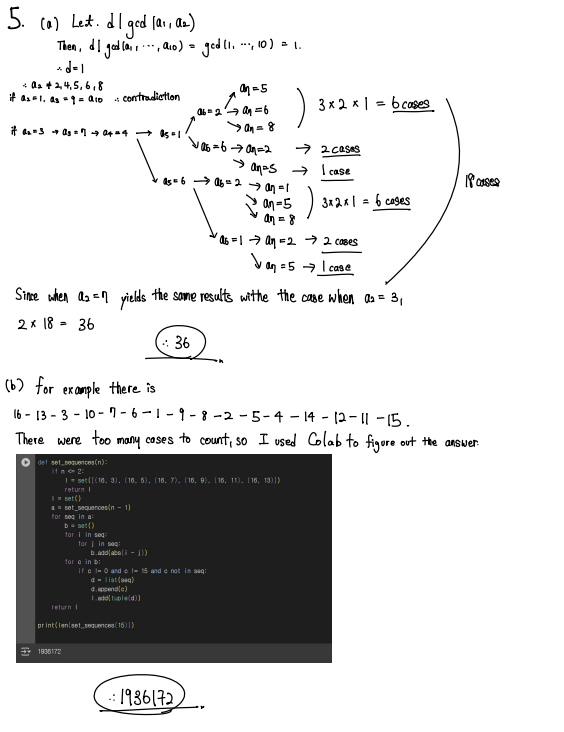 5. (a) Let. d | gcd (a₁, a₂)
Then, d | gcd (a₁, ⋯, a₁₀) = gcd (1, ⋯, 10) = 1.
∴ d = 1
∴ a₂ ≠ 2, 4, 5, 6, 8
if a₂ = 1, a₃ = 9 = a₁₀ ∴ contradiction
if a₂ = 3 → a₃ = 7 → a₄ = 4 → a₅ = 1 → a₆ = 2 → a₇ = 5
→ a₇ = 6
→ a₇ = 8
3 × 2 × 1 = 6 cases
→ a₆ = 6 → a₇ = 2 → 2 cases
→ a₇ = 5 → 1 case
→ a₅ = 6 → a₆ = 2 → a₇ = 1
→ a₇ = 5
→ a₇ = 8
3 × 2 × 1 = 6 cases
→ a₆ = 1 → a₇ = 2 → 2 cases
→ a₇ = 5 → 1 case
18 cases
Since when a₂ = 7 yields the same results withe the case when a₂ = 3,
2 × 18 = 36
∴ 36
(b) for example there is
16 - 13 - 3 - 10 - 7 - 6 - 1 - 9 - 8 - 2 - 5 - 4 - 14 - 12 - 11 - 15.
There were too many cases to count, so I used Colab to figure out the answer.
def set_sequences(n):
if n <= 2:
l = set([(16, 3), (16, 5), (16, 7), (16, 9), (16, 11), (16, 13)])
return l
l = set()
a = set_sequences(n - 1)
for seq in a:
b = set()
for i in seq:
for j in seq:
b.add(abs(i - j))
for c in b:
if c != 0 and c != 15 and c not in seq:
d = list(seq)
d.append(c)
l.add(tuple(d))
return l
print(len(set_sequences(15)))
1936172
∴ 1936172